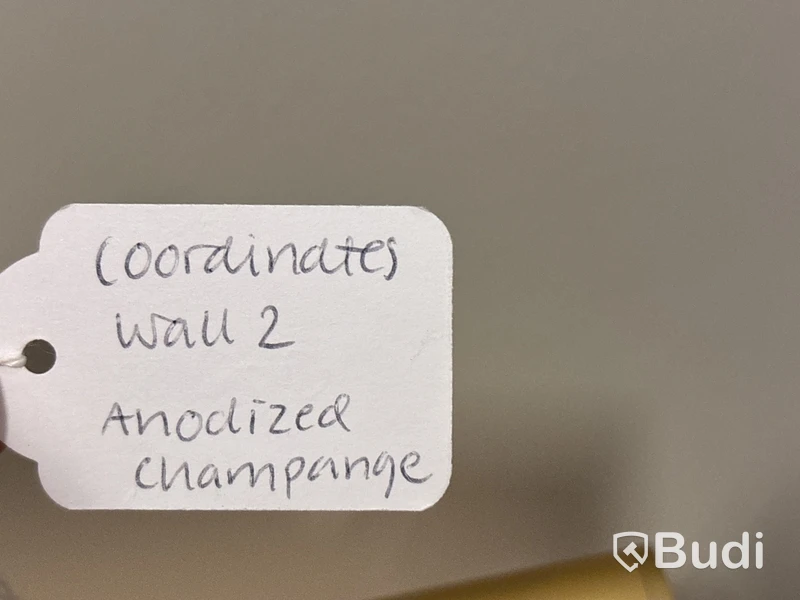 Coordinates
Wall 2
Anodized
Champange
Budi